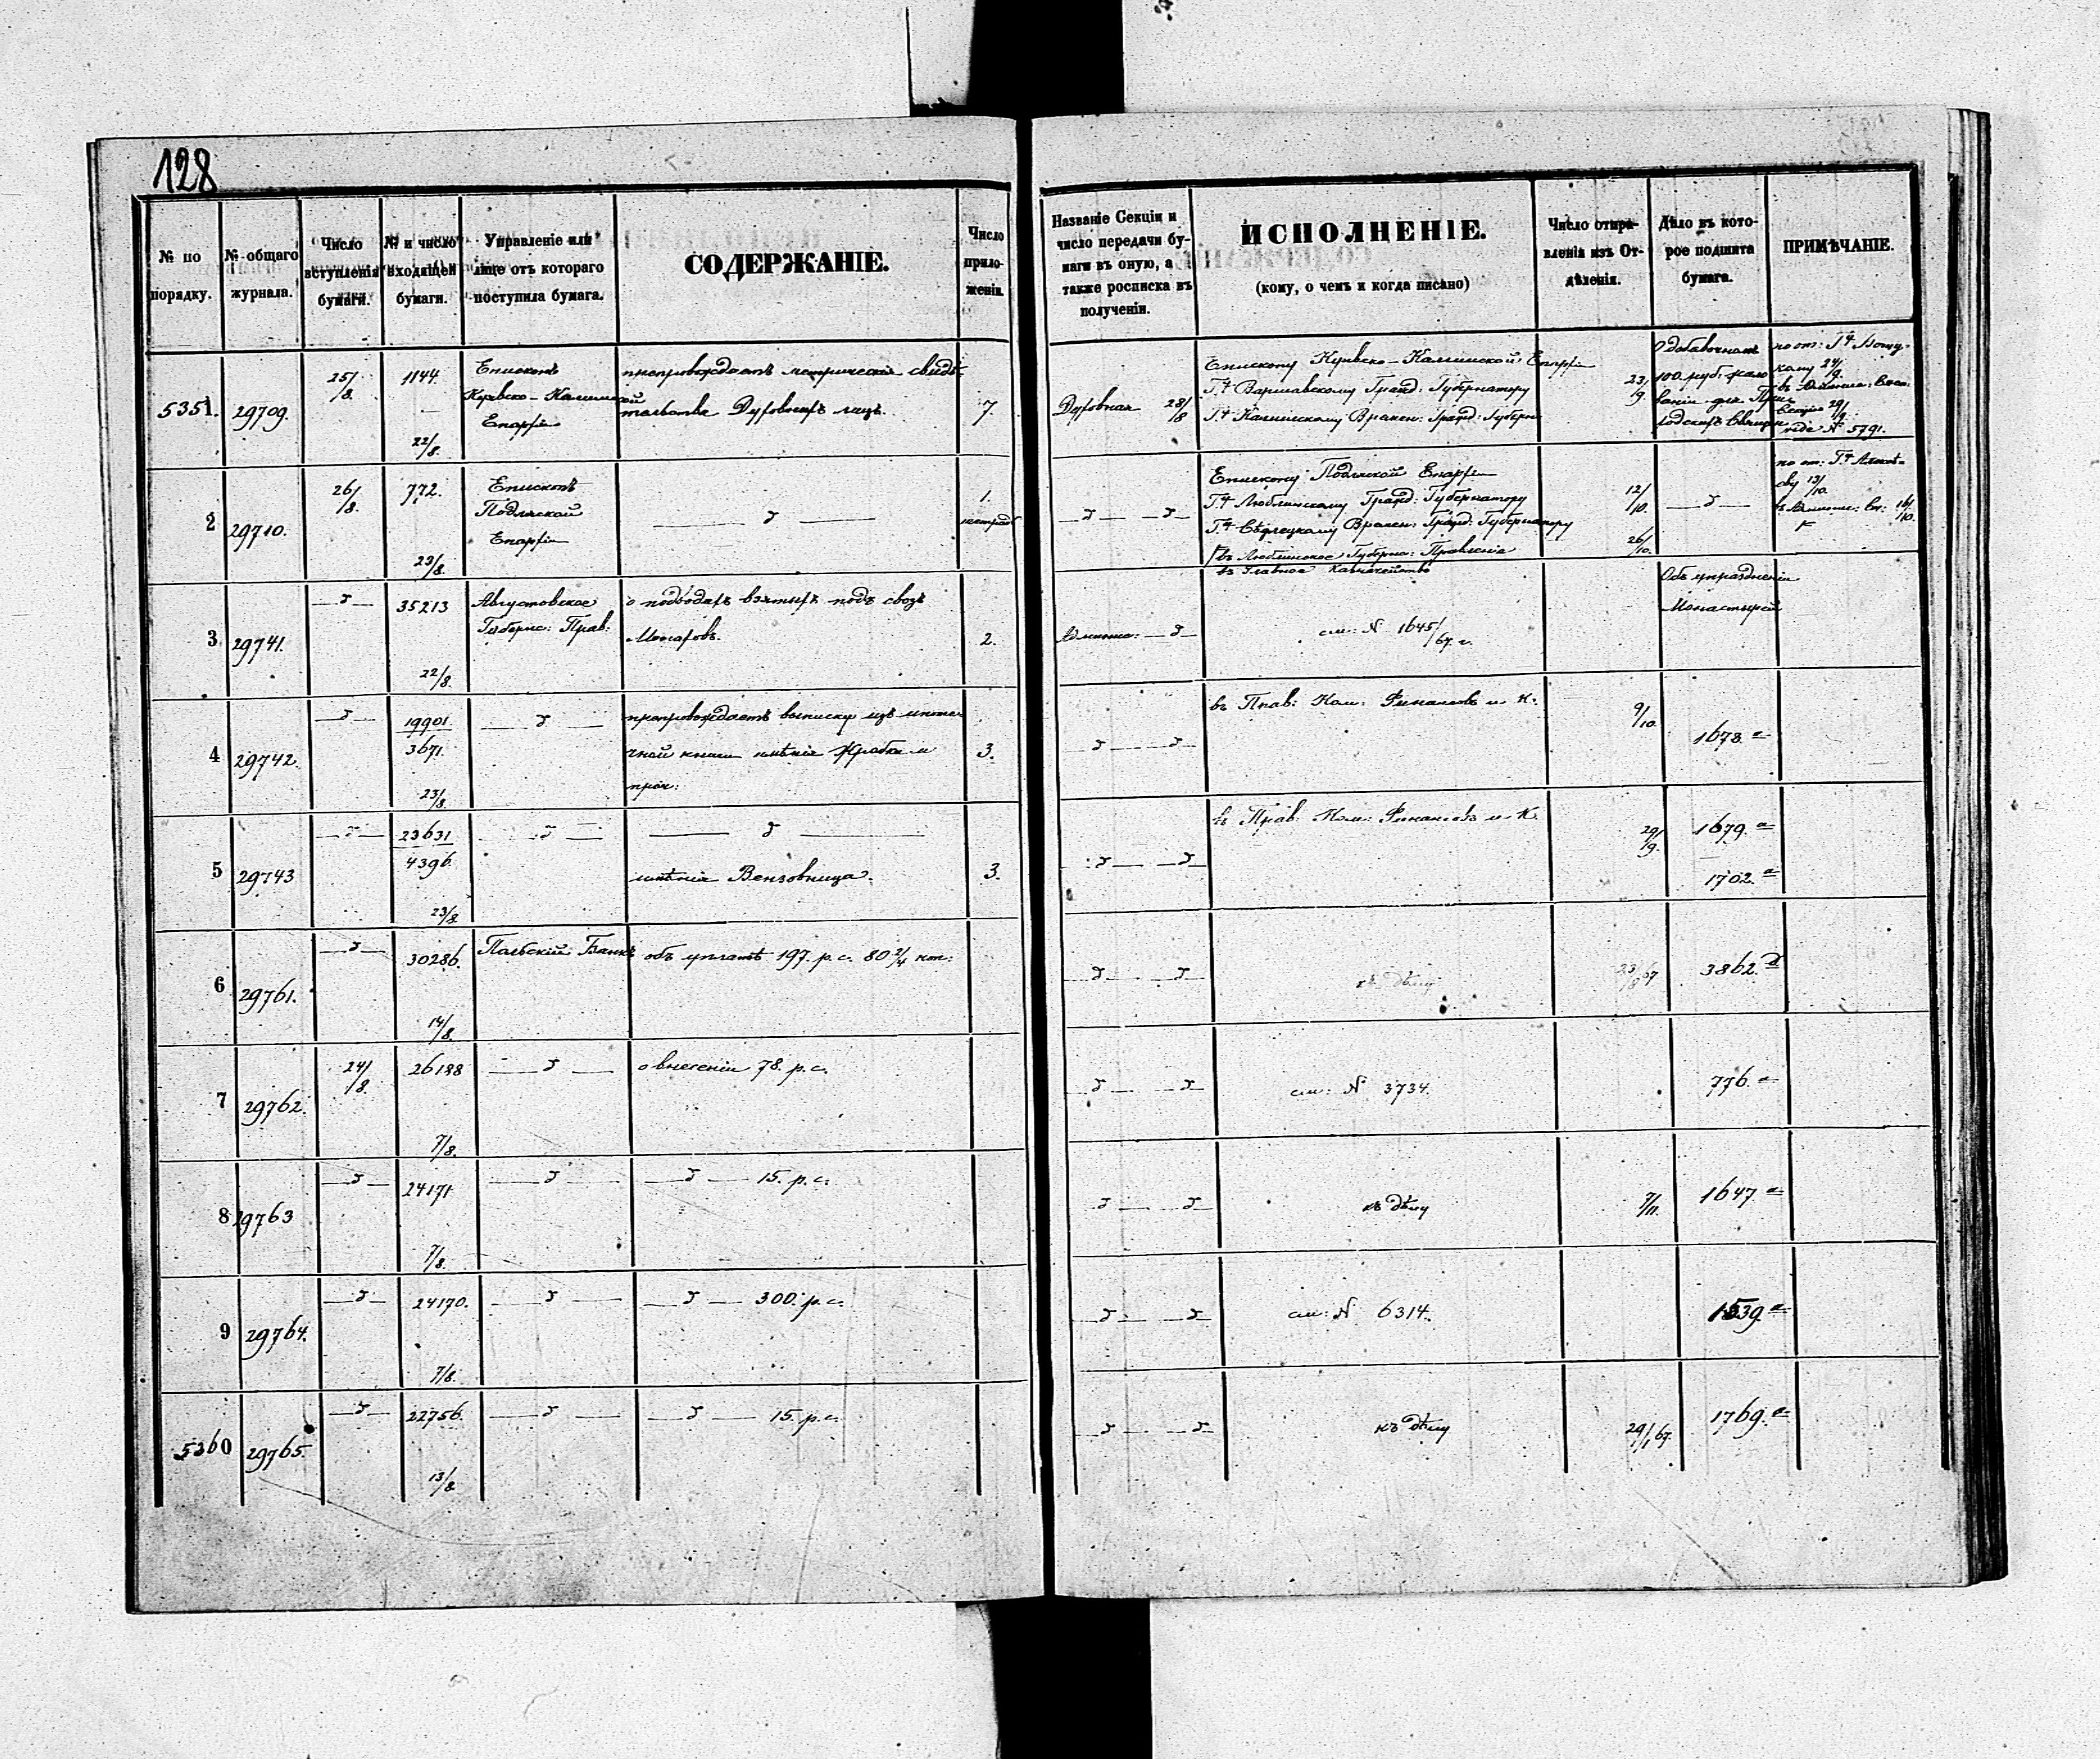 128
№ по порядку.
№ общаго журнала.
Число вступленія бумаги.
№ и число входящей бумаги.
Управленіе или лице отъ котораго поступила бумага.
СОДЕРЖАНІЕ.
Число приложеній.
Названіе Секціи и число передачи бумаги въ оную, а также росписка въ полученіи.
ИСПОЛНЕНІЕ.
(кому, о чемъ и когда писано)
Число отправленія изъ Отдѣленія.
Дѣло въ которое подшита бумага.
ПРИМѢЧАНІЕ.
5351. 29709. 25/8. 1144. 22/8.
Епископъ
Куявско-Калишской
Епархіи
препровождаетъ метрическія свидѣ-
тельства Духовныхъ лицъ.
7.
Духовная 28/8
Епископу Куявско-Калишской Епархіи
Гну Варшавскому Гражд: Губернатору
Гну Калишскому Времен: Гражд: Губерн
23/9
О добавочномъ
100 руб: жало
ваніи для
по от: Гну
кому 24/9.
29/9.
№ 5791.
2 29710. 26/8. 772. 23/8.
Епископъ
Подляской
Епархіи
— " —
1.
— " — " —
Епископу Подляской Епархіи
Гну Люблинскому Гражд: Губернатору
Гну Сѣдлецкому Времен: Гражд: Губернатору
въ Люблинское Губернс: Правленіе
въ Главное Казначейство
12/10.
26/10.
— " —
по от: Гну
13/10.
16/10.
3 29741. — " — 35213 22/8.
Августовское
Губернс: Прав:
о подводахъ взятыхъ подъ свозъ
2.
Админис: — " —
см: № 1645/67. г.
Объ упраздненіи
Монастырей
4 29742. — " — 19901/3671. 23/8.
— " —
препровождаетъ выписку изъ ипоте-
чной книги имѣнія и
проч:
3.
— " — " —
въ Прав: Ком: Финансовъ и К.
9/10.
1678. а
5 29743 — " — 23631/4396. 23/8.
— " —
— " —
имѣнія Вензовница.
3.
— " — " —
въ Прав: Ком: Финансовъ и К.
29/9.
1679. а
1702. а
6 29761. — " — 30286. 14/8.
Польскій Банкъ
объ уплатѣ 197. р. с. 80 2/4 коп:
— " — " —
къ дѣлу
23/8 67
3862. д
7 29762. 24/8. 26188 7/8.
— " —
о внесеніи 78. р. с.
— " — " —
см: № 3734.
776. а
8 29763 — " — 24171. 7/8.
— " —
— " — 15. р. с.
— " — " —
къ дѣлу
7/11.
1647. а
9 29764. — " — 24170. 7/8.
— " —
— " — 300. р. с.
— " — " —
см: № 6314.
1539. а
5360 29765. — " — 22756. 13/8
— " —
— " — 15. р. с.
— " — " —
къ дѣлу
29/1 67.
1769. а